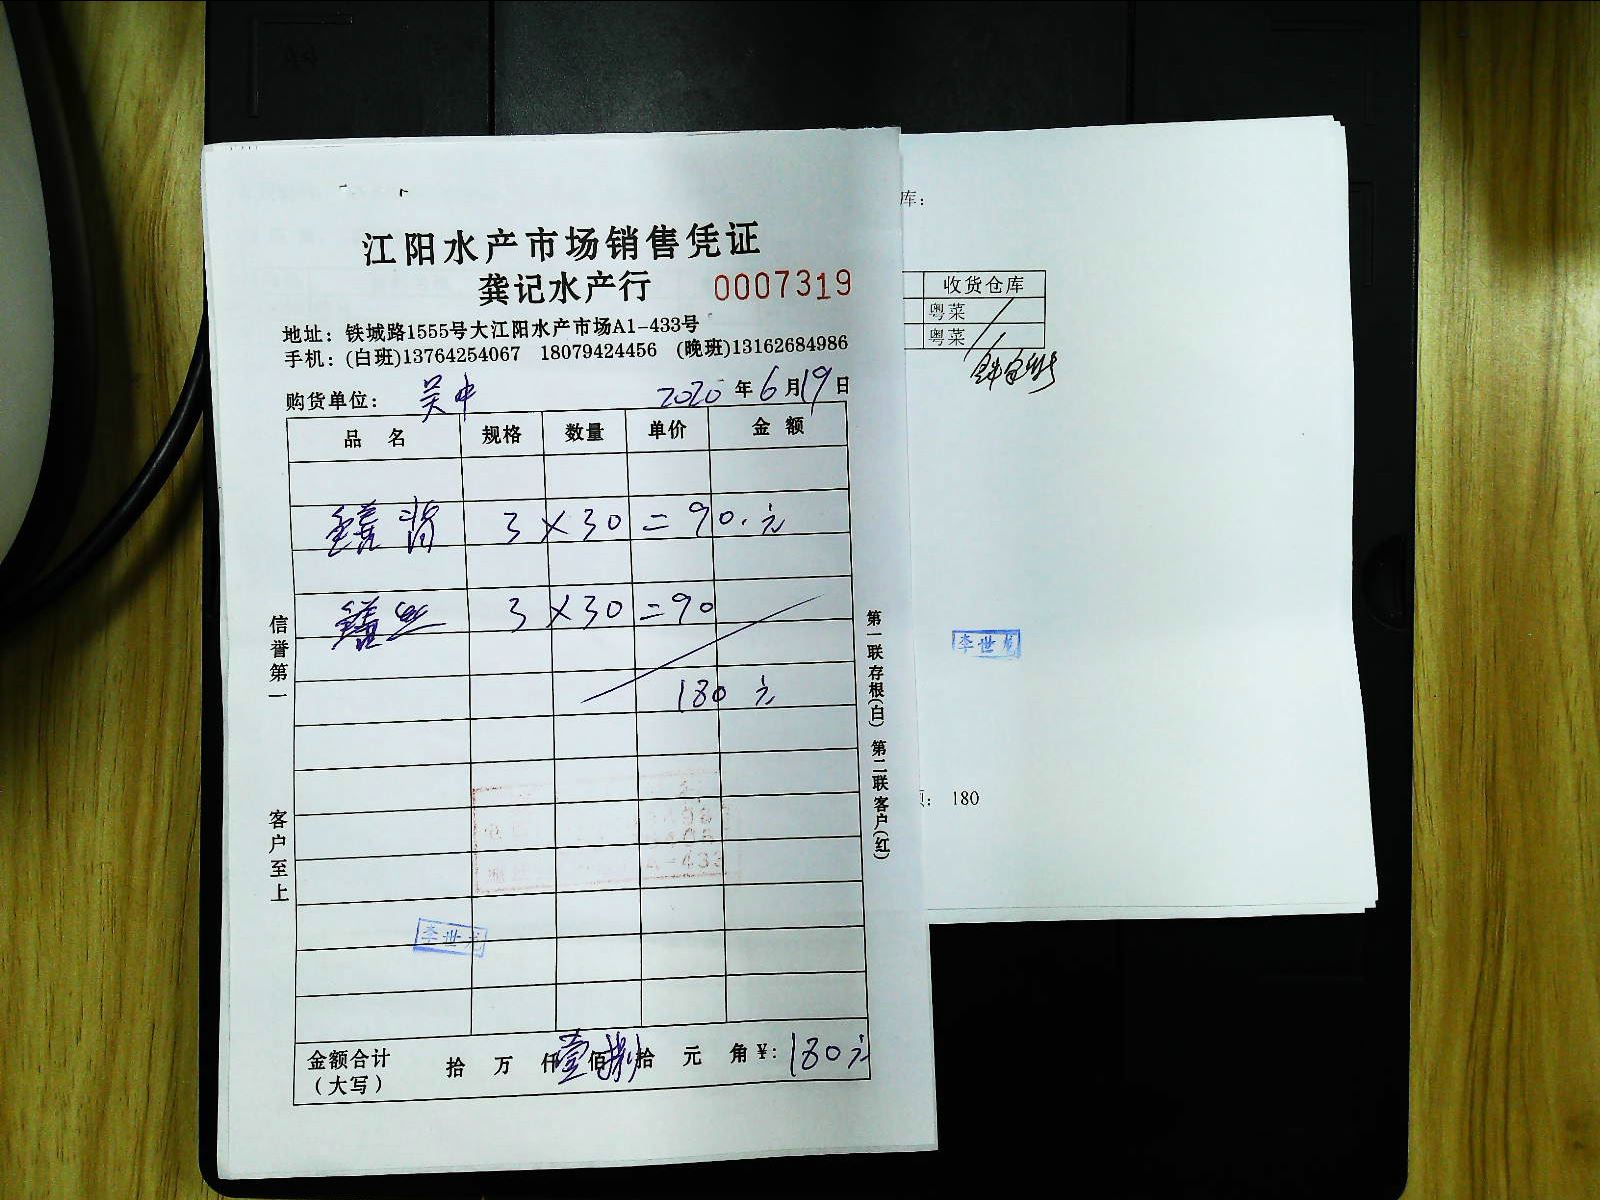 江阳水产市场销售凭证
龚记水产行 0007319
地址：铁城路1555号大江阳水产市场A1-433号
手机：(白班)13764254067 18079424456 (晚班)13162684986
购货单位：吴中 2020年6月19日
品名 规格 数量 单价 金额
3×30=90.元
3×30=90
180元
信誉第一
客户至上
第一联存根(白) 第二联客户(红)
A-433
李世龙
金额合计 拾 万 仟壹佰捌拾 元 角￥：180元
（大写）
库：
收货仓库
粤菜
粤菜
李世龙
：180